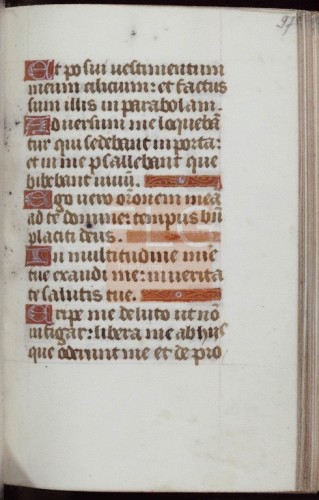 97
Et posui vestimentum
meum cilicium: et factus
sum illis in parabolam.
Adversum me loquebã
tur qui sedebant in porta:
et in me psallebant qui
bibebant vinũ.
Ego vero orõnem meã
ad te domine: tempus bñ
placiti deus.
In multitudine mie
tue exaudi me: in verita
te salutis tue.
Eripe me de luto ut nõ
infigar: libera me ab hijs
qui oderunt me et de pro